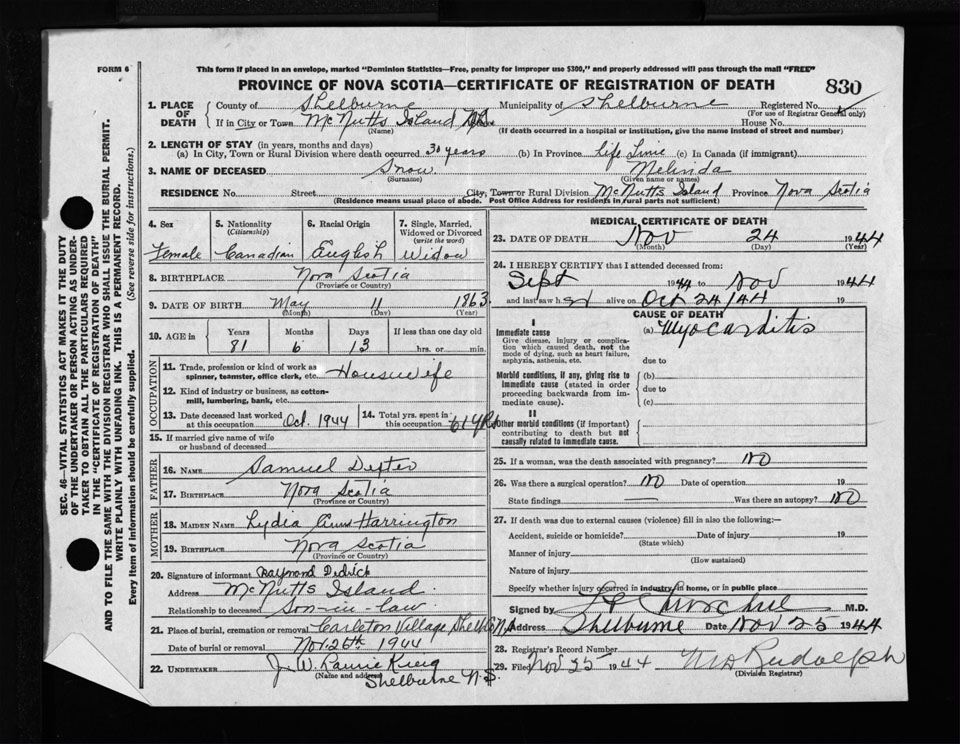 FORM 6
This form if placed in an envelope, marked "Dominion Statistics—Free, penalty for improper use $300," and properly addressed will pass through the mail "FREE"
PROVINCE OF NOVA SCOTIA—CERTIFICATE OF REGISTRATION OF DEATH 830
1. PLACE OF DEATH County of Shelburne Municipality of Shelburne Registered No.
(For use of Registrar General only)
If in City or Town McNutts Island House No.
(Name) (If death occurred in a hospital or institution, give the name instead of street and number)
2. LENGTH OF STAY (in years, months and days)
(a) In City, Town or Rural Division where death occurred 30 years (b) In Province Life Time (c) In Canada (if immigrant)
3. NAME OF DECEASED Snow Melinda
(Surname) (Given name or names)
RESIDENCE No. Street City, Town or Rural Division McNutts Island Province Nova Scotia
(Residence means usual place of abode. Post Office Address for residents in rural parts not sufficient)
4. Sex 5. Nationality (Citizenship) 6. Racial Origin 7. Single, Married, Widowed or Divorced (write the word)
Female Canadian English Widow
8. BIRTHPLACE Nova Scotia
(Province or Country)
9. DATE OF BIRTH May 11 1863
(Month) (Day) (Year)
10. AGE in Years Months Days If less than one day old
81 6 13 hrs. or min.
OCCUPATION
11. Trade, profession or kind of work as spinner, teamster, office clerk, etc. Housewife
12. Kind of industry or business, as cotton-mill, lumbering, bank, etc.
13. Date deceased last worked at this occupation Oct. 1944 14. Total yrs. spent in this occupation 61 yrs
15. If married give name of wife or husband of deceased
FATHER
16. NAME Samuel Dexter
17. BIRTHPLACE Nova Scotia
(Province or Country)
MOTHER
18. MAIDEN NAME Lydia Ann Harrington
19. BIRTHPLACE Nova Scotia
(Province or Country)
20. Signature of informant Raymond Dedrick
Address McNutts Island
Relationship to deceased Son-in-law
21. Place of burial, cremation or removal Carleton Village Shel Co N.S.
Date of burial or removal Nov. 26th 1944
22. UNDERTAKER J. W.
(Name and address) Shelburne N.S.
MEDICAL CERTIFICATE OF DEATH
23. DATE OF DEATH Nov 24 1944
(Month) (Day) (Year)
24. I HEREBY CERTIFY that I attended deceased from:
Sept 1944 to Nov 1944
and last saw h er alive on Oct 24/44 19
CAUSE OF DEATH
I
Immediate cause (a) Myocarditis
Give disease, injury or complication which caused death, not the mode of dying, such as heart failure, asphyxia, asthenia, etc.
due to
Morbid conditions, if any, giving rise to immediate cause (stated in order proceeding backwards from immediate cause).
(b)
due to
(c)
II
Other morbid conditions (if important) contributing to death but not causally related to immediate cause.
25. If a woman, was the death associated with pregnancy? No
26. Was there a surgical operation? No Date of operation 19
State findings — Was there an autopsy? No
27. If death was due to external causes (violence) fill in also the following:—
Accident, suicide or homicide? Date of injury 19
(State which)
Manner of injury
(How sustained)
Nature of injury
Specify whether injury occurred in industry, in home, or in public place
Signed by M.D.
Address Shelburne Date Nov 25 1944
28. Registrar's Record Number
29. Filed Nov 25 1944 Rudolph
(Division Registrar)
SEC. 46—VITAL STATISTICS ACT MAKES IT THE DUTY
OF THE UNDERTAKER OR PERSON ACTING AS UNDER-
TAKER TO OBTAIN ALL THE PARTICULARS REQUIRED
IN THE "CERTIFICATE OF REGISTRATION OF DEATH"
AND TO FILE THE SAME WITH THE DIVISION REGISTRAR WHO SHALL ISSUE THE BURIAL PERMIT.
WRITE PLAINLY WITH UNFADING INK. THIS IS A PERMANENT RECORD.
Every item of information should be carefully supplied. (See reverse side for instructions.)